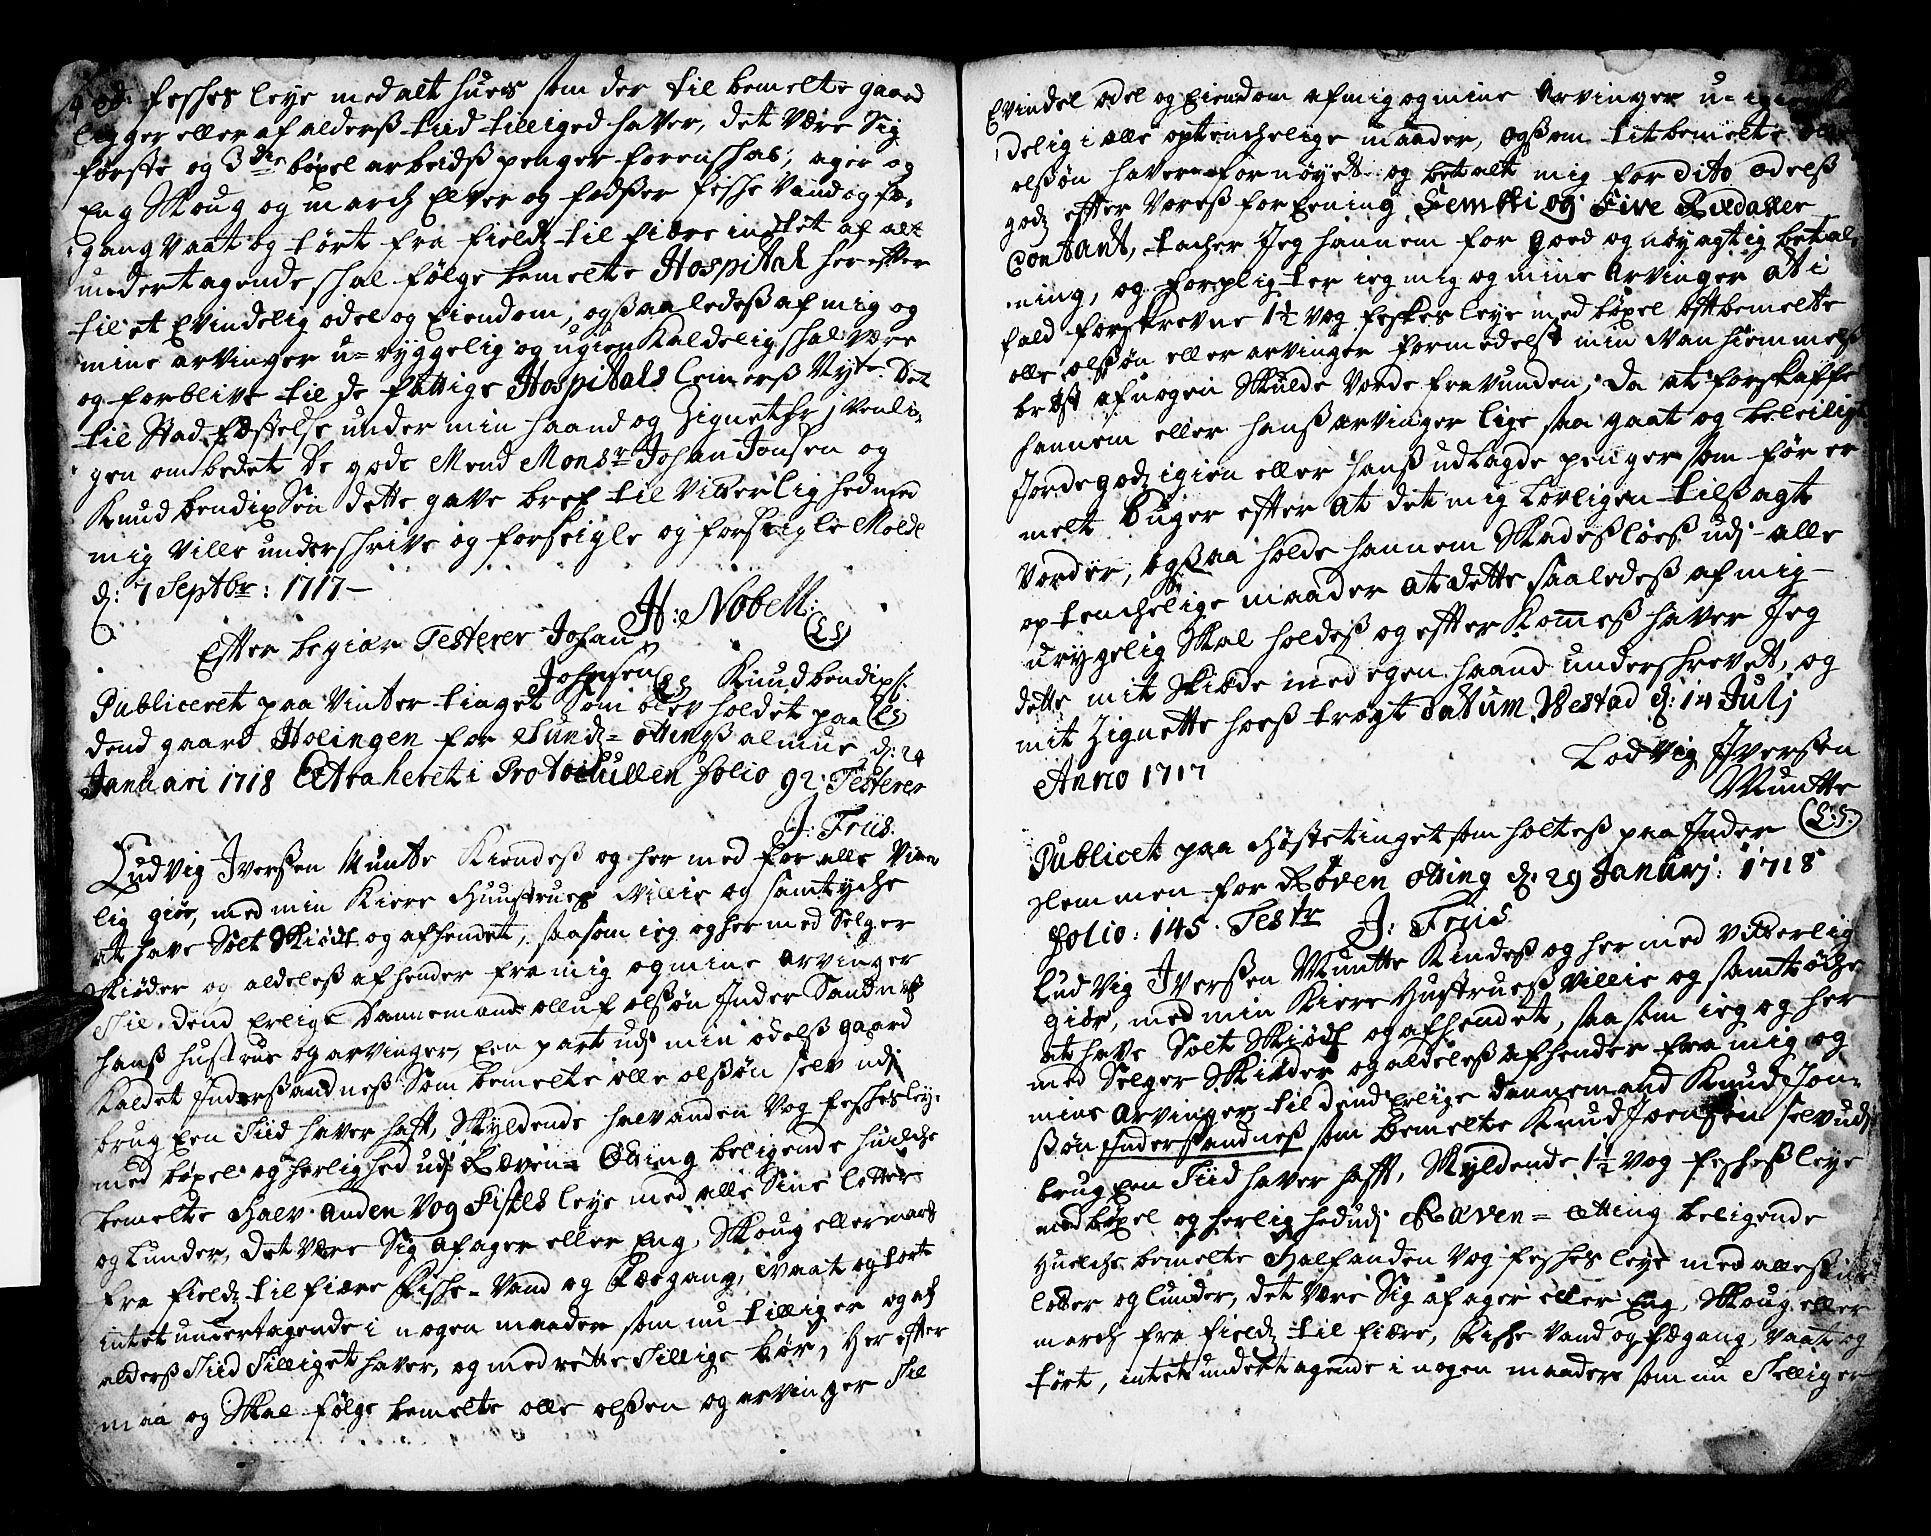 feskes leye med alt hues som der til bemelte gaard
ligger eller af alderß tiid tilliged haver, det være Sig
første og 3die böxel arbeidß penger forenskab, ager og
Eng Skoug og march Elver og fosser feske vand og fæ-
gang vaat og tørt fra field til fiære indtet af alt
undertagende skal følge bemelte Hospital her efter
til et Evindelig odel og Eiendom, ogsaaledeß af mig og
mine arvinger u=ryggelig og ugien kaldelig skal være
og forblive til de fattige Hospitals Lemerß Nytte. Det
til Stadfæstelse under min haand og Zignet hr j venli-
gen ombedet De gode Mend Monsr Johan Jonsen og
Knud bendixSen dette gave bref til vitterlighed med
mig ville underskrive og forseigle og forseigle Molde
d: 7 Septbr: 1717 -
H: Nobell
(LS)
Efter begiær Testerer Johan
Johnsen (LS) Knud bendixs:
Publiceret paa vinter tinget som blev holdet paa (LS)
dend gaard Holingen for Sund= ottingß almue d: 24
Januari 1718 Extraheret i Protocullen folio 92. Testerer
J: Friis.
Ludvig Iverßen Muntte Kiendeß og her med for alle vitter
lig giør, med min Kiere Huustrueß Villie og samtyche
at have Solt Skiødt og afhendet, saasom ieg og her med Selger
Skiøder og aldeleß afhender fra mig og mine arvinger
Til dend Erlige Dannemand olluf olßøn Inder Sandneß
hanß hustrue og arvinger, Een part udj min odelß gaard
Kaldet Inderßandneß Som bemelte olle olßøn selv udj
brug Een Tiid haver hafft, Skyldende halvanden Vog feskesleye
med böxel og herlighed udj Røven= Otting beligende huilche
bemelte Halv anden Vog Fiskes leye med alle Sine lotter
og Lunder, det være Sig af ager eller Eng, Skoug eller mark
fra field til fiære Fiske= vand og Fægang, vaat og tørt
intet undertagende i nogen maader som nu tilliger og af
alderß Tiid Tilliget haver, og med rette Tillige bør, her efter
maa og Skal følge bemelte olle olßen og arvinger Til
Evindel odel og Eiendom af mig og mine Arvinger u=
delig i alle optenchelige maader, ogsom titbemelte olle
olßøn haver fornøyet og betalt mig for dito odelß
godz effter voreß forEening Femti og Five Rixdaller
Contant, tacher Jeg hannem for goed og nøyagtig betal-
ning, og forpligter ieg mig og mine Arvinger at i
fald forskrevne 1½ vog feskes leye med böxel offtbemelte
olle olßøn eller arvinger formedelst min van hiemmels
brøst af nogen Skulde vorde fravunden, da at forskaffe
hannem eller hanß arvinger lige saa gaat og beleilig
Jordegodz igien eller hanß udlagde penger som før er
melt Vuger efter at det mig Lovligen tilßagt
vorder, ogsaa holde hannem Skadeßløeß udj alle
optenchelige maader at dette saaledeß af mig
urygelig Skal holdeß og effterkomeß haver Jeg
dette mit Skiøde med egen haand underskrevet, og
mit Zignette hoeß trøgt datum Westad d: 14 Julj
Anno 1717
Lodvig Iverßen
Muntte
(L:S:)
Publicet paa høstetinget som holteß paa Inder
Hemmen for Røven otting d: 29 Januarj: 1718
folio: 145. Testr J: Friis
Ludvig Iverßen Muntte Kindeß og her med vitterlig
Giør, med min Kiere Hustrueß villie og samtøche
at have Solt Skiødt og afhendet, saasom ieg og her
med Selger Skiøder og aldeleß afhender fra mig og
mine Arvinger til dend Erlige dannemand Knud Jon-
ßøn Inderßandneß som bemelte Knud Joenßen selv udj
brug Een Tiid haver hafft, Skyldende 1½ vog feskeßleye
med böxel og herlighed udj Røven= otting beligende
Huilche bemelte Halfanden Vog feskes leye med alle sine
lotter og lunder, det være Sig af ager eller Eng, Skoug eller
march fra field til fiære, Fiske vand og fægang, vaat og
tørt, intet undertagende i nogen maadere som nu Telliger